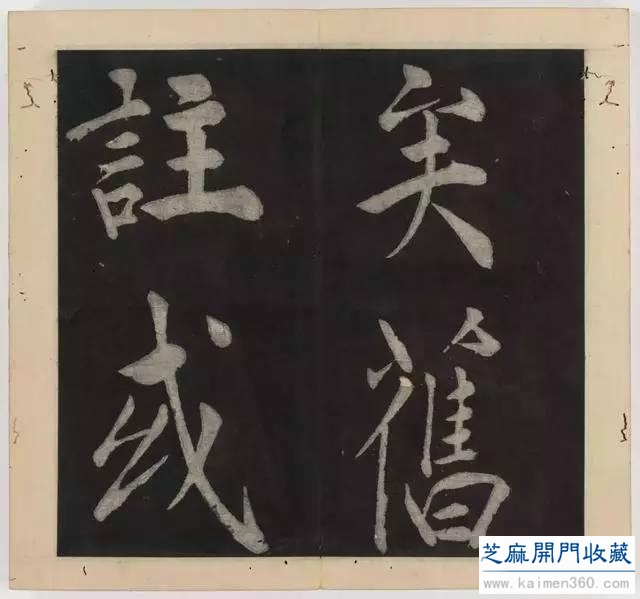 矣舊
註或
芝麻開門收藏
www.kaimen360.com